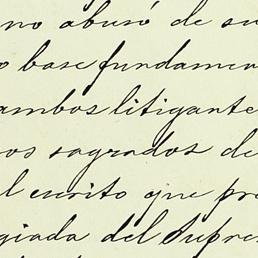 no abusó de su
o base fundamen
ambos litigante
os sagrados de
l escrito que pre
giada del Supre